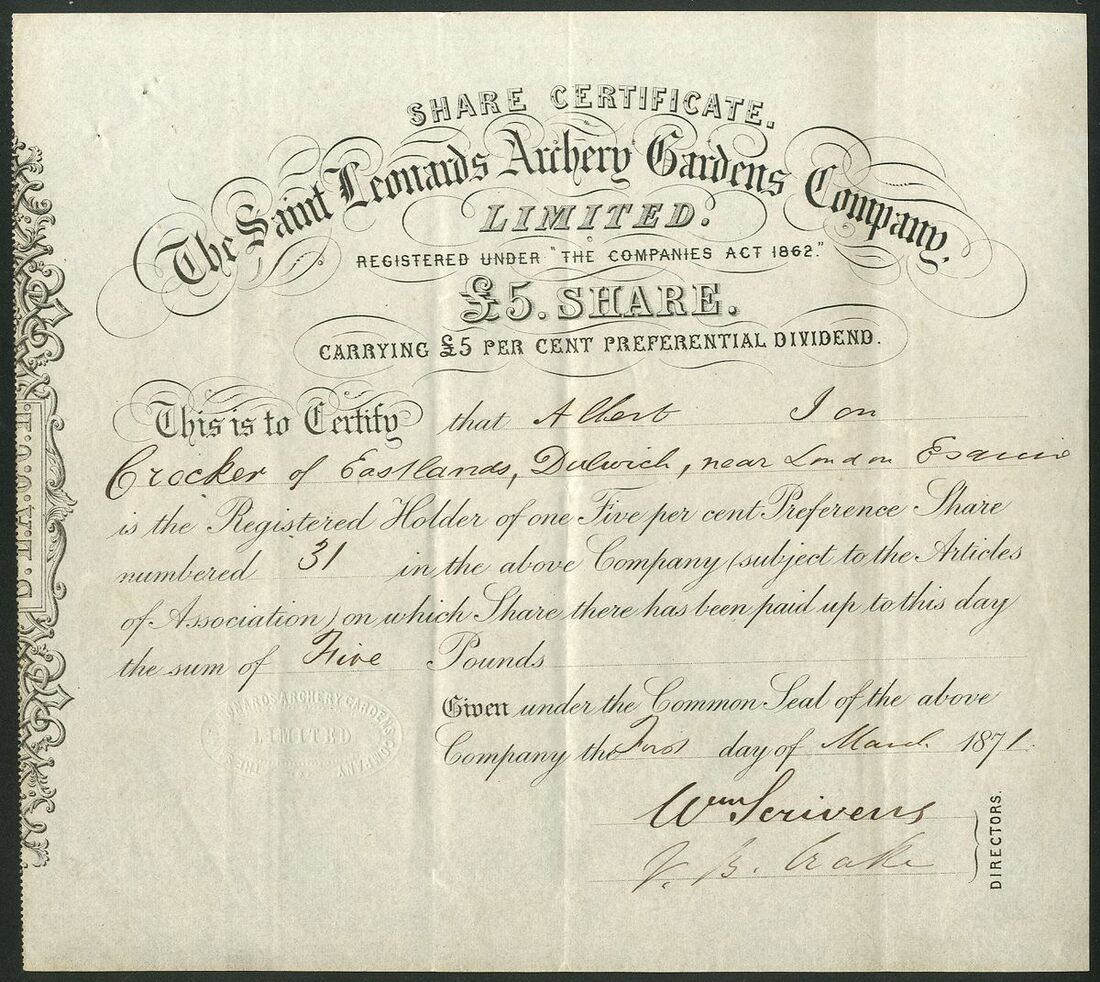 SHARE CERTIFICATE.
The Saint Leonards Archery Gardens Company,
LIMITED.
REGISTERED UNDER "THE COMPANIES ACT 1862."
£5. SHARE.
CARRYING £5 PER CENT PREFERENTIAL DIVIDEND.
This is to Certify that Albert Ion
Crocker of Eastlands, Dulwich, near London Esquire
is the Registered Holder of one Five per cent Preference Share
numbered 31 in the above Company (subject to the Articles
of Association) on which Share there has been paid up to this day
the sum of Five Pounds
Given under the Common Seal of the above
Company the First day of March 1871.
Wm Scrivens
J. B. Crake
DIRECTORS.
LEONARDS ARCHERY GARDENS COMPANY
LIMITED